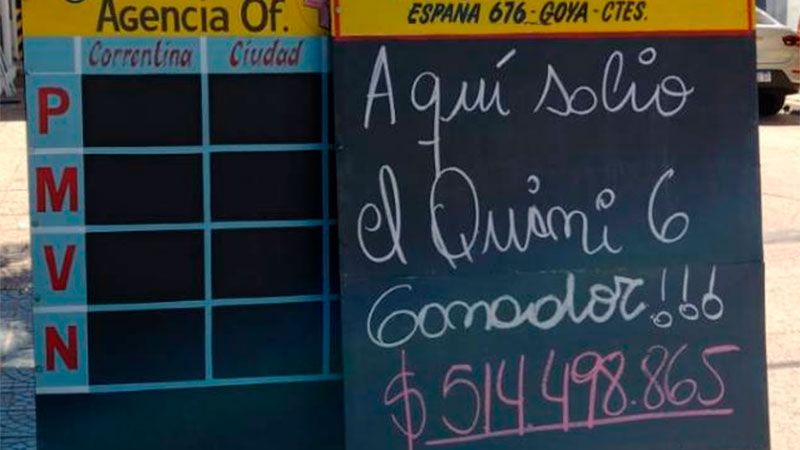 Agencia Of.
Correntina Ciudad
P
M
V
N
ESPAÑA 676-GOYA-CTES.
Aquí salio
el Quini 6
Ganador!!!
$514.498.865